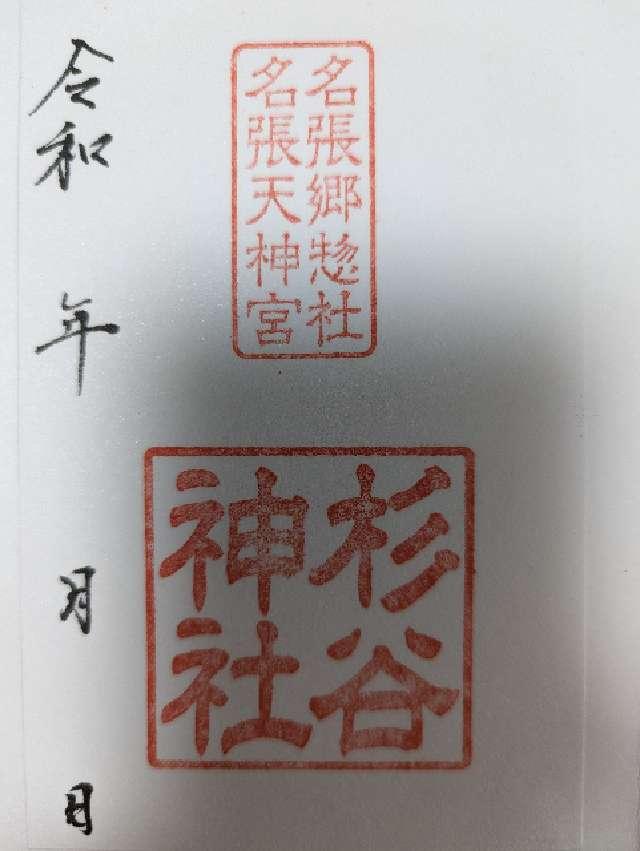 名張郷惣社
名張天神宮
杉谷
神社
令和 年 月 日